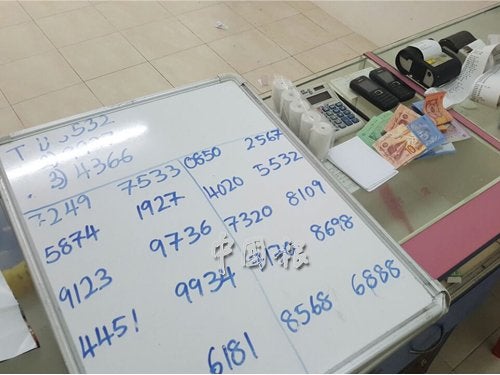 532
3) 4366
7249 7533 0850 2567
5874 1927 4020 5532
9123 9736 7320 8109
4451 9934 8698
6181 8568 6888
中國報